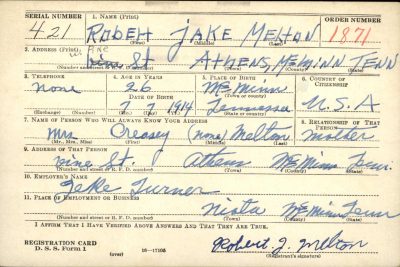 SERIAL NUMBER 1. NAME (Print) ORDER NUMBER
421 ROBERT JAKE MELTON 1871
(First) (Middle) (Last)
2. ADDRESS (Print)
Pine St ATHENS, McMINN TENN
(Number and street or R. F. D. number) (Town) (County) (State)
3. TELEPHONE 4. AGE IN YEARS 5. PLACE OF BIRTH 6. COUNTRY OF CITIZENSHIP
none 26 McMinn
DATE OF BIRTH (Town or county)
7 7 1914 Tennessee U.S.A
(Exchange) (Number) (Mo.) (Day) (Yr.) (State or country)
7. NAME OF PERSON WHO WILL ALWAYS KNOW YOUR ADDRESS 8. RELATIONSHIP OF THAT PERSON
Mrs Creasey (none) Melton mother
(Mr., Mrs., Miss) (First) (Middle) (Last)
9. ADDRESS OF THAT PERSON
Pine St. Athens McMinn Tenn.
(Number and street or R. F. D. number) (Town) (County) (State)
10. EMPLOYER'S NAME
Jake Turner
11. PLACE OF EMPLOYMENT OR BUSINESS
Niota McMinn Tenn
(Number and street or R. F. D. number) (Town) (County) (State)
I AFFIRM THAT I HAVE VERIFIED ABOVE ANSWERS AND THAT THEY ARE TRUE.
REGISTRATION CARD
D. S. S. Form 1 (over) Robert J. Melton
(Registrant's signature)